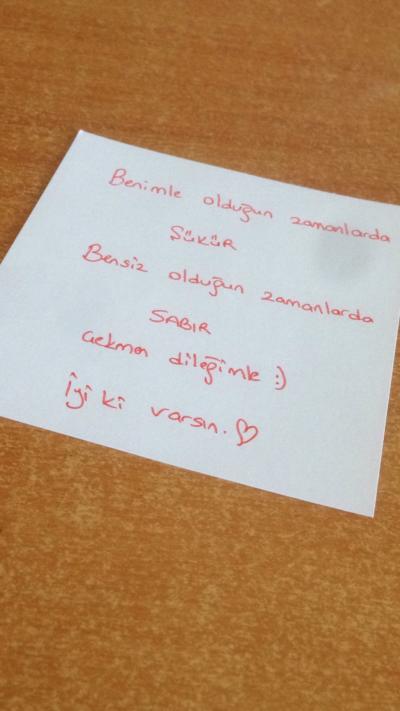 Benimle olduğun zamanlarda
ŞÜKÜR
Bensiz olduğun zamanlarda
SABIR
çekmen dileğimle :)
İyi ki varsın. ♡